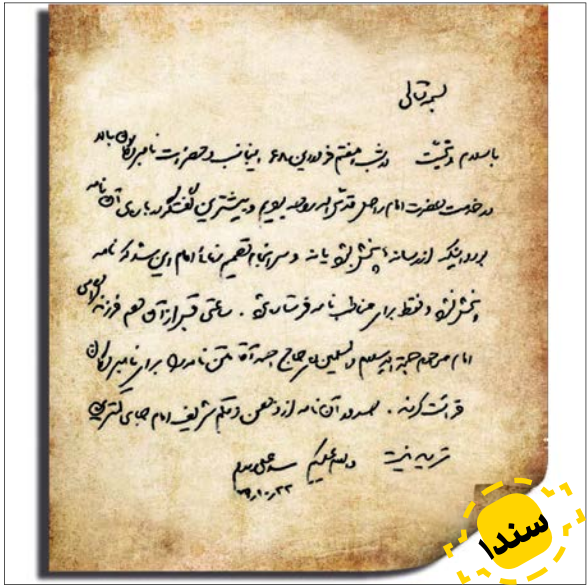 بسمه تعالی
باسلام و تحیت در شب هفتم فروردین ۶۸ اینجانب و حضرات نامبردگان بالا
در خدمت حضرت امام راحل قدس الله روحه بودیم و بیشترین گفتگو درباره‌ی آن نامه
بود و اینکه از رسانه‌ها پخش بشود یا نه و سرانجام تصمیم نهائی امام این شد که نامه
پخش نشود و فقط برای مخاطب نامه فرستاده شود. ساعتی قبل از آن هم فرزند گرامی
امام مرحوم حجة الاسلام والمسلمین حاج احمد آقا متن نامه را برای نامبردگان
قرائت کردند. صدور آن نامه از ذهن و قلم شریف امام جای کمترین
تردید نیست والسلام علیکم سید علی
سندا